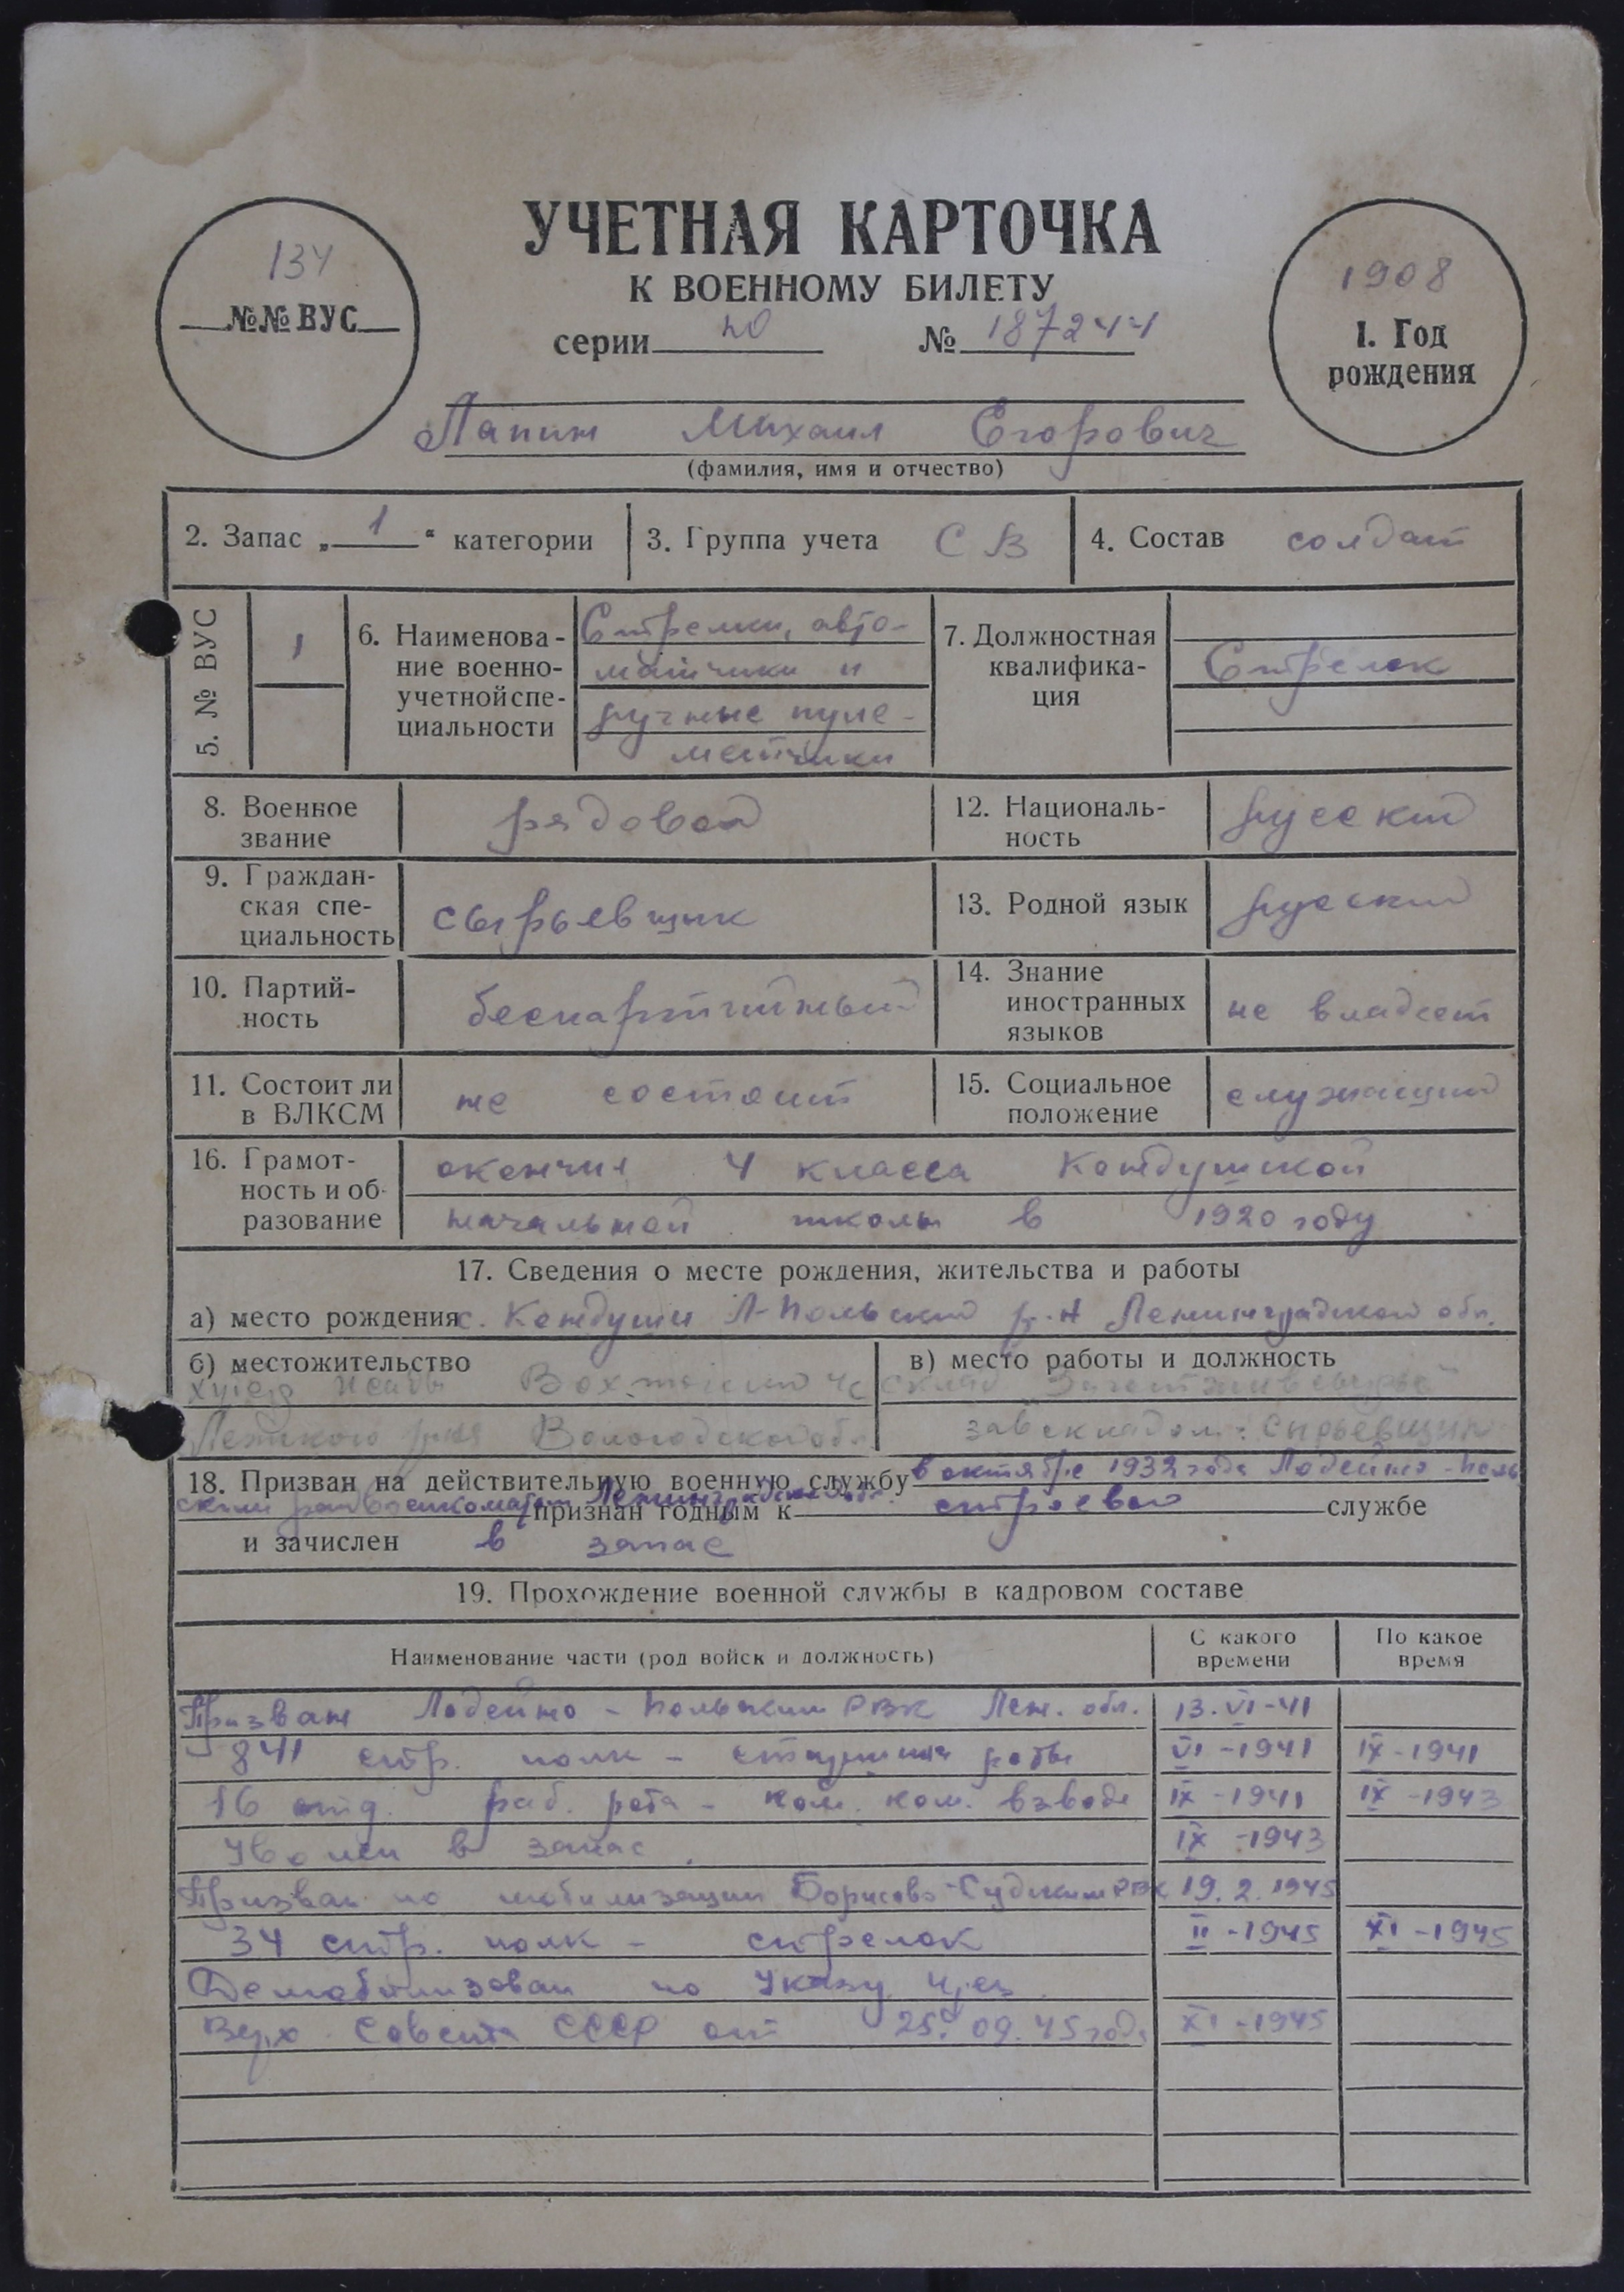 УЧЕТНАЯ КАРТОЧКА
К ВОЕННОМУ БИЛЕТУ
134
№№ ВУС
1908
1. Год
рождения
серии № 187244
Лапин Михаил Егорович
(фамилия, имя и отчество)
2. Запас „ 1 “ категории
3. Группа учета СВ
4. Состав солдат
5. № ВУС
1
6. Наименова-
ние военно-
учетной спе-
циальности
Стрелки, авто-
матчики и
ручные пуле-
метчики
7. Должностная
квалифика-
ция
Стрелок
8. Военное
звание
рядовой
12. Националь-
ность
русский
9. Граждан-
ская спе-
циальность
сырьевщик
13. Родной язык
русский
10. Партий-
ность
беспартийный
14. Знание
иностранных
языков
не владеет
11. Состоит ли
в ВЛКСМ
не состоит
15. Социальное
положение
служащий
16. Грамот-
ность и об-
разование
окончил 4 класса Кондушской
начальной школы в 1920 году
17. Сведения о месте рождения, жительства и работы
а) место рождения с. Кондуши Л-Польский р-н Ленинградской обл.
б) местожительство
Вологодской обл.
в) место работы и должность
склад
завскладом. сырьевщик
18. Призван на действительную военную службу в октябре 1932 года Лодейно-Поль
ским райвоенкоматом Ленинградской обл. признан годным к строевой службе
и зачислен в запас
19. Прохождение военной службы в кадровом составе
Наименование части (род войск и должность)
С какого
времени
По какое
время
Призван Лодейно-Польским РВК Лен. обл. 13.VI-41
841 стр. полк - старшина роты VI-1941 IX-1941
16 отд. раб. рота - пом. ком. взвода IX-1941 IX-1943
Уволен в запас. IX-1943
Призван по мобилизации Борисово-Судским РВК 19.2.1945
34 стр. полк - стрелок II-1945 XI-1945
Демобилизован по Указу През.
Верх. Совета СССР от 25.09.45 года XI-1945